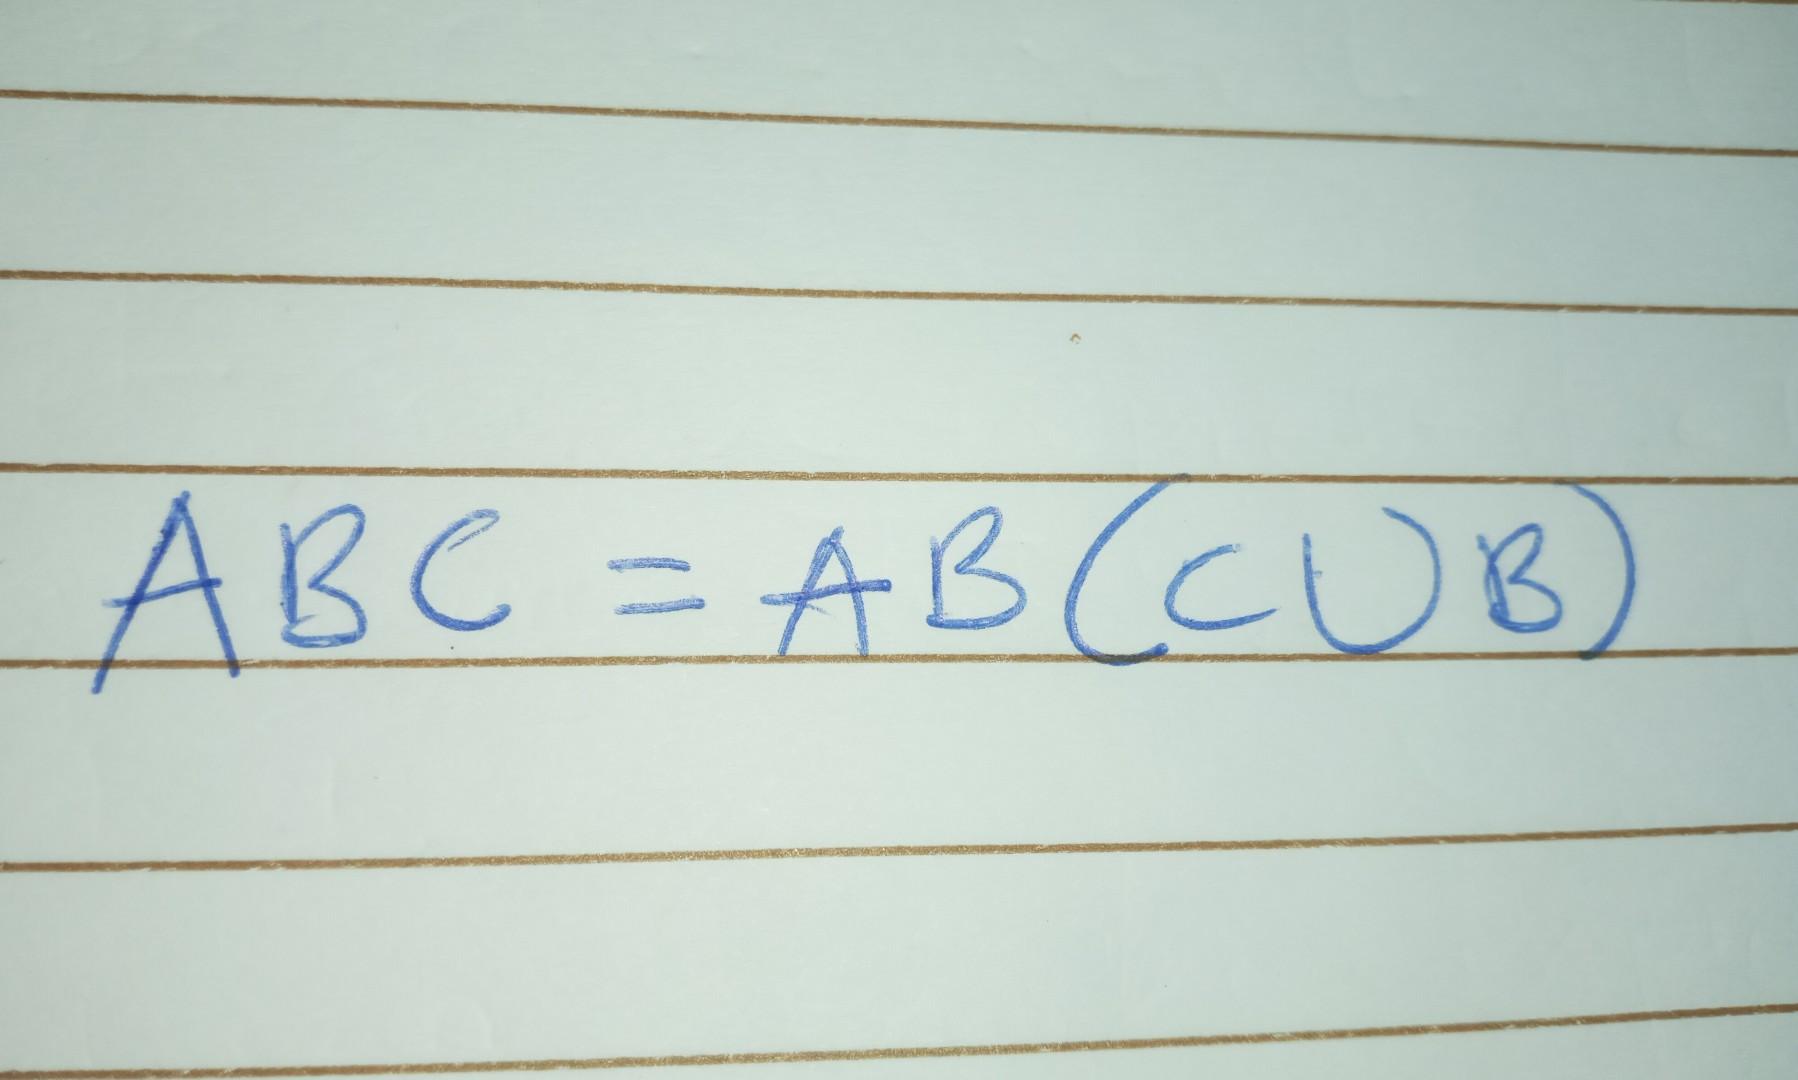 ABC = AB(CUB)